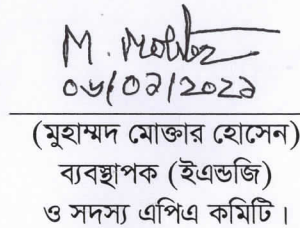 ০৬/০২/২০২২
(মুহাম্মদ মোক্তার হোসেন)
ব্যবস্থাপক (ইএন্ডজি)
ও সদস্য এপিএ কমিটি।